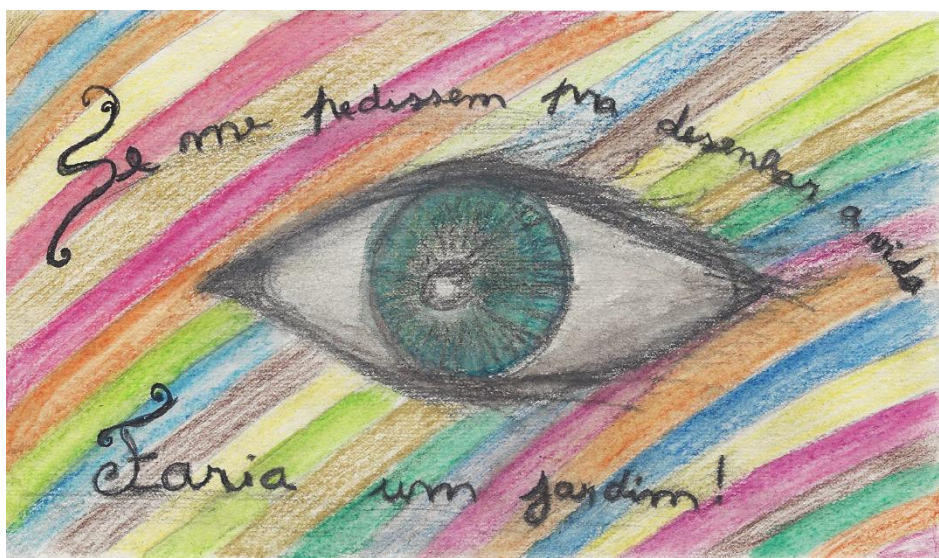 Se me pedissem pra desenhar a vida
Faria um jardim!